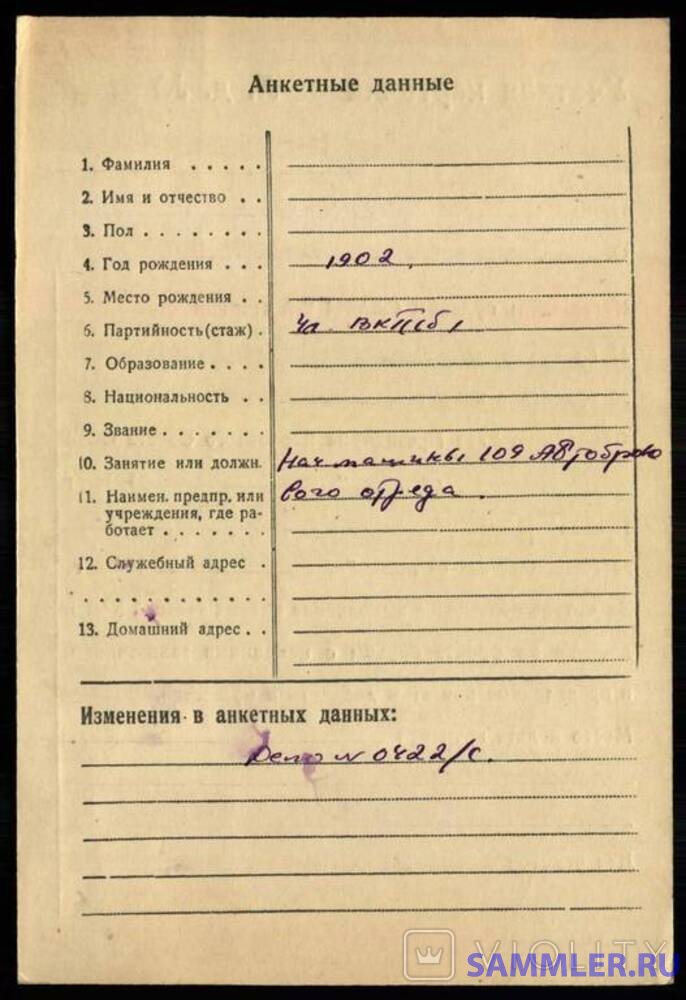 Анкетные данные
1. Фамилия . . . . .
2. Имя и отчество . .
3. Пол . . . . . . . .
4. Год рождения . . . 1902.
5. Место рождения . .
6. Партийность (стаж) . Чл. ВКПб,
7. Образование . . . .
8. Национальность . .
9. Звание . . . . . . .
10. Занятие или должн. Нач машины 109
11. Наимен. предпр. или вого отряда.
учреждения, где ра-
ботает . . . . . . .
12. Служебный адрес .
. . . . . . . . . . . .
13. Домашний адрес . .
Изменения в анкетных данных:
Дело N 0422/с.
VIOLITY
SAMMLER.RU